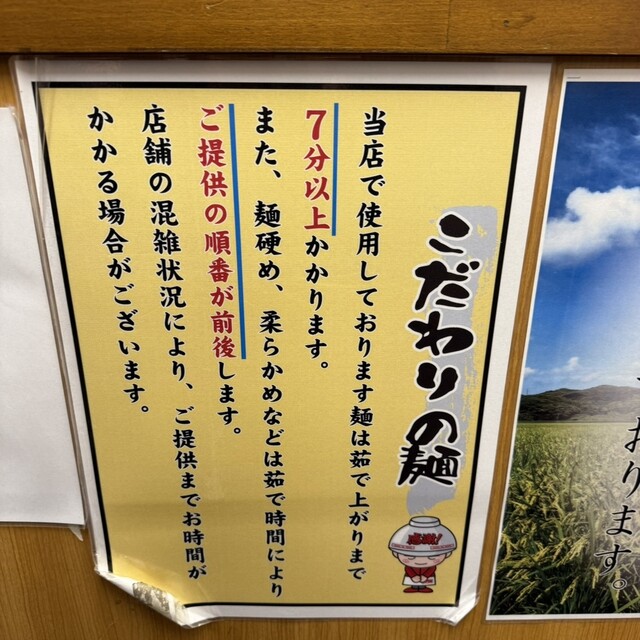 こだわりの麺
当店で使用しております麺は茹で上がりまで
7分以上かかります。
また、麺硬め、柔らかめなどは茹で時間により
ご提供の順番が前後します。
店舗の混雑状況により、ご提供までお時間が
かかる場合がございます。
感激!
おります。